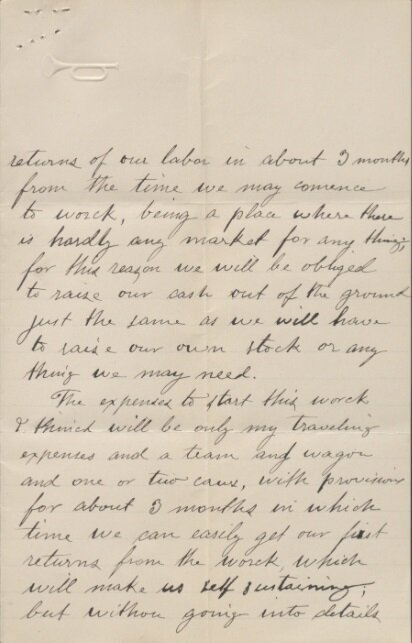 returns of our labor in about 3 months
from the time we may comence
to worck, being a place where there
is hardly any market for any thing,
for this reason we will be obliged
to raise our cash out of the ground
just the same as we will have
to raise our own stock or any
thing we may need.
The expenses to start this worck
I thinck will be only my traveling
expenses and a team and wagon
and one or two caws, with provision
for about 3 months in which
time we can easily get our first
returns from the worck, which
will make us self sustaining,
but withou going into details